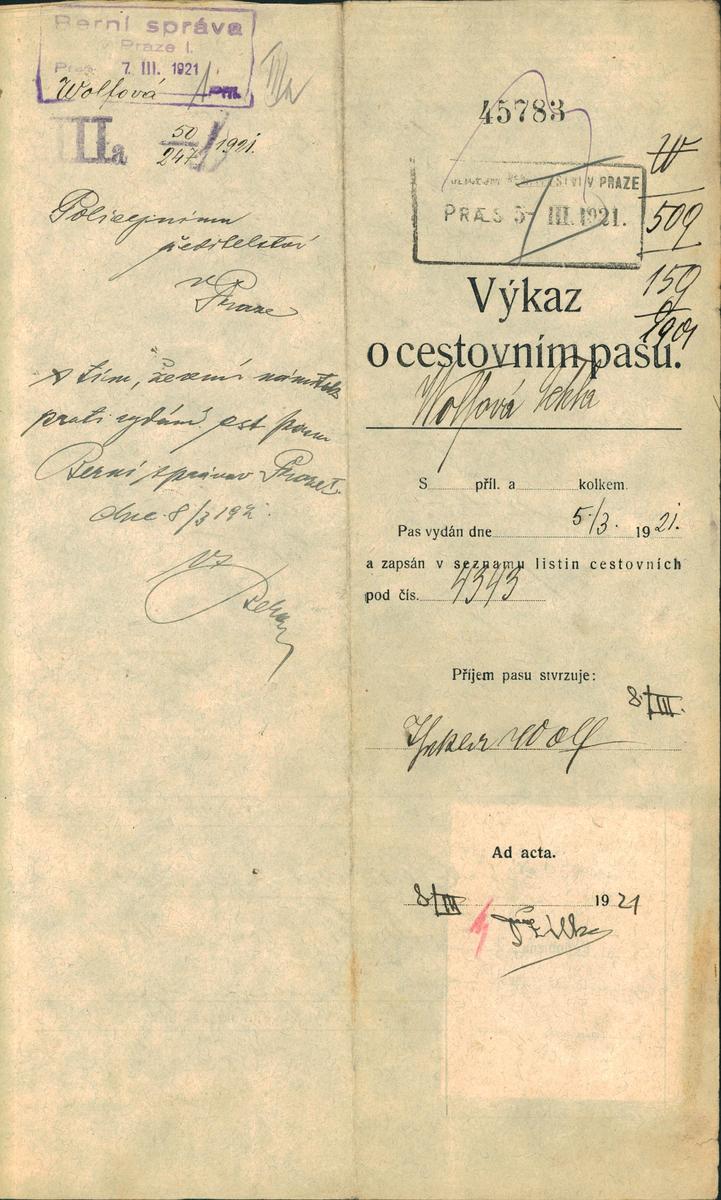 Berní správa
v Praze I.
Praes. 7. III. 1921
Wolfová
IIIa
50
247 1921.
Policejnímu
ředitelství
v Praze
s tím, že není námitek
proti vydání
Berní správa v Praze I.
dne 8/3 192
45783
W
509
159
1901
ŘEDITELSTVÍ V PRAZE
PRÆS 5- III. 1921.
Výkaz
o cestovním pasu.
Wolfová
S příl. a kolkem.
Pas vydán dne 5./3. 1921.
a zapsán v seznamu listin cestovních
pod čís. 4343
Příjem pasu stvrzuje:
8./III.
Wolf
Ad acta.
8/III 1921